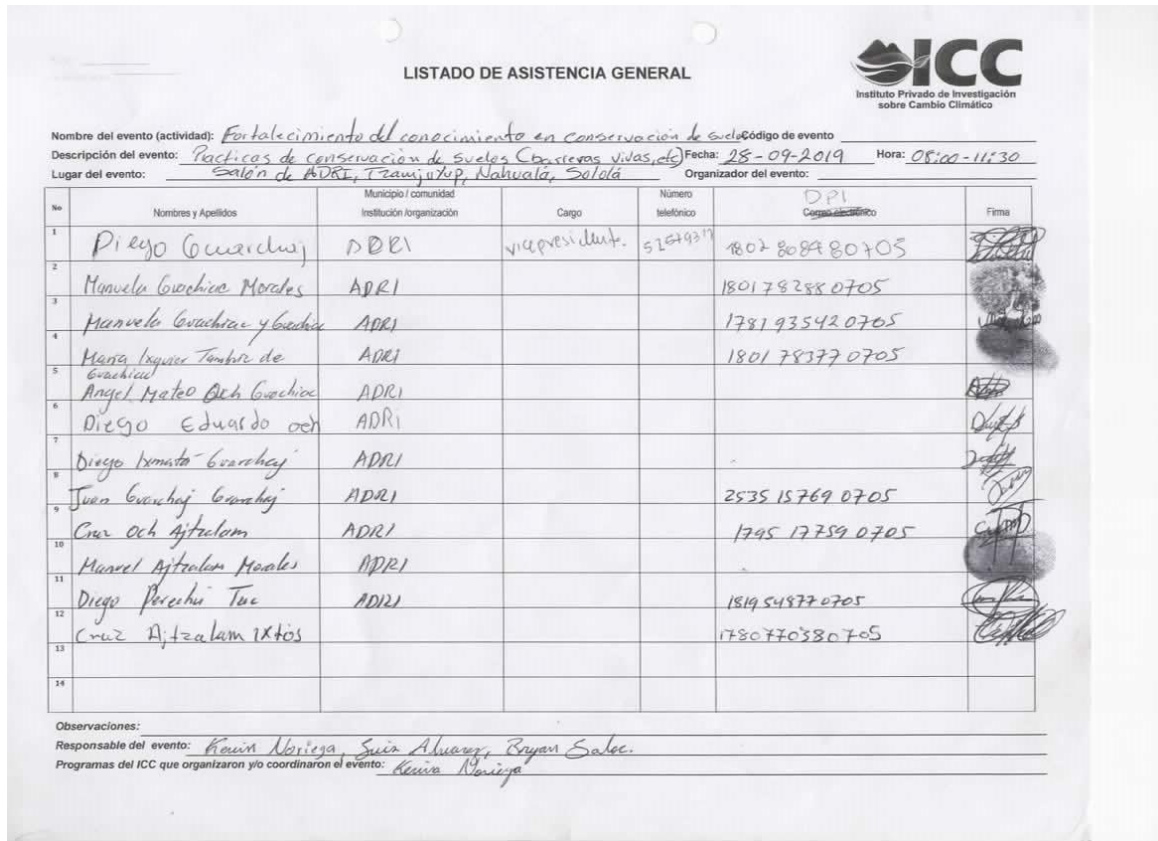 LISTADO DE ASISTENCIA GENERAL
ICC
Instituto Privado de Investigación
sobre Cambio Climático
Nombre del evento (actividad): Fortalecimiento del conocimiento en conservación de suelo Código de evento
Descripción del evento: Practicas de conservación de suelos (barreras vivas, etc) Fecha: 28-09-2019 Hora: 08:00 - 11:30
Lugar del evento: Salón de ADRI, Tzamjuyup, Nahualá, Sololá Organizador del evento:
No Nombres y Apellidos Municipio / comunidad Institución /organización Cargo Número telefónico DPI Correo electrónico Firma
1 Diego Guarchaj ADRI vicepresidente. 1802 80898 0705
2 Manuela Guachiac Morales ADRI 1801 78288 0705
3 Manuela Guachiac y Guachiac ADRI 1781 93542 0705
4 María Ixquier Tambriz de Guachiac ADRI 1801 78377 0705
5 Angel Mateo Och Guachiac ADRI
6 Diego Eduardo och ADRI
7 Diego Ixmatá Guarchaj ADRI
8 Juan Guarchaj Guarchaj ADRI 2535 15769 0705
9 Cruz Och Ajtzalam ADRI 1795 17759 0705
10 Manuel Ajtzalam Morales ADRI
11 Diego Perechú Tuc ADRI 1819 54877 0705
12 Cruz Ajtzalam IXtós 1780770380705
13
14
Observaciones:
Responsable del evento: Kevin Noriega, Luis Alvarez, Bryan Saloc.
Programas del ICC que organizaron y/o coordinaron el evento: Noriega